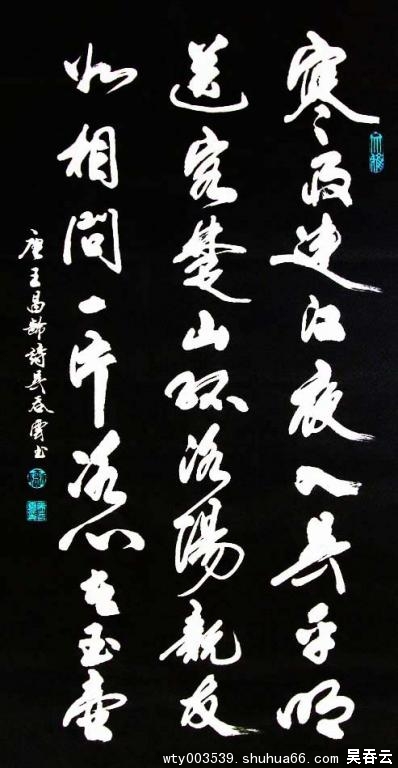 寒雨連江夜入吴平明
送客楚山孤洛陽親友
如相問一片冰心在玉壺
唐王昌齡詩吴吞雲书
吴吞云
wty003539.shuhua66.com